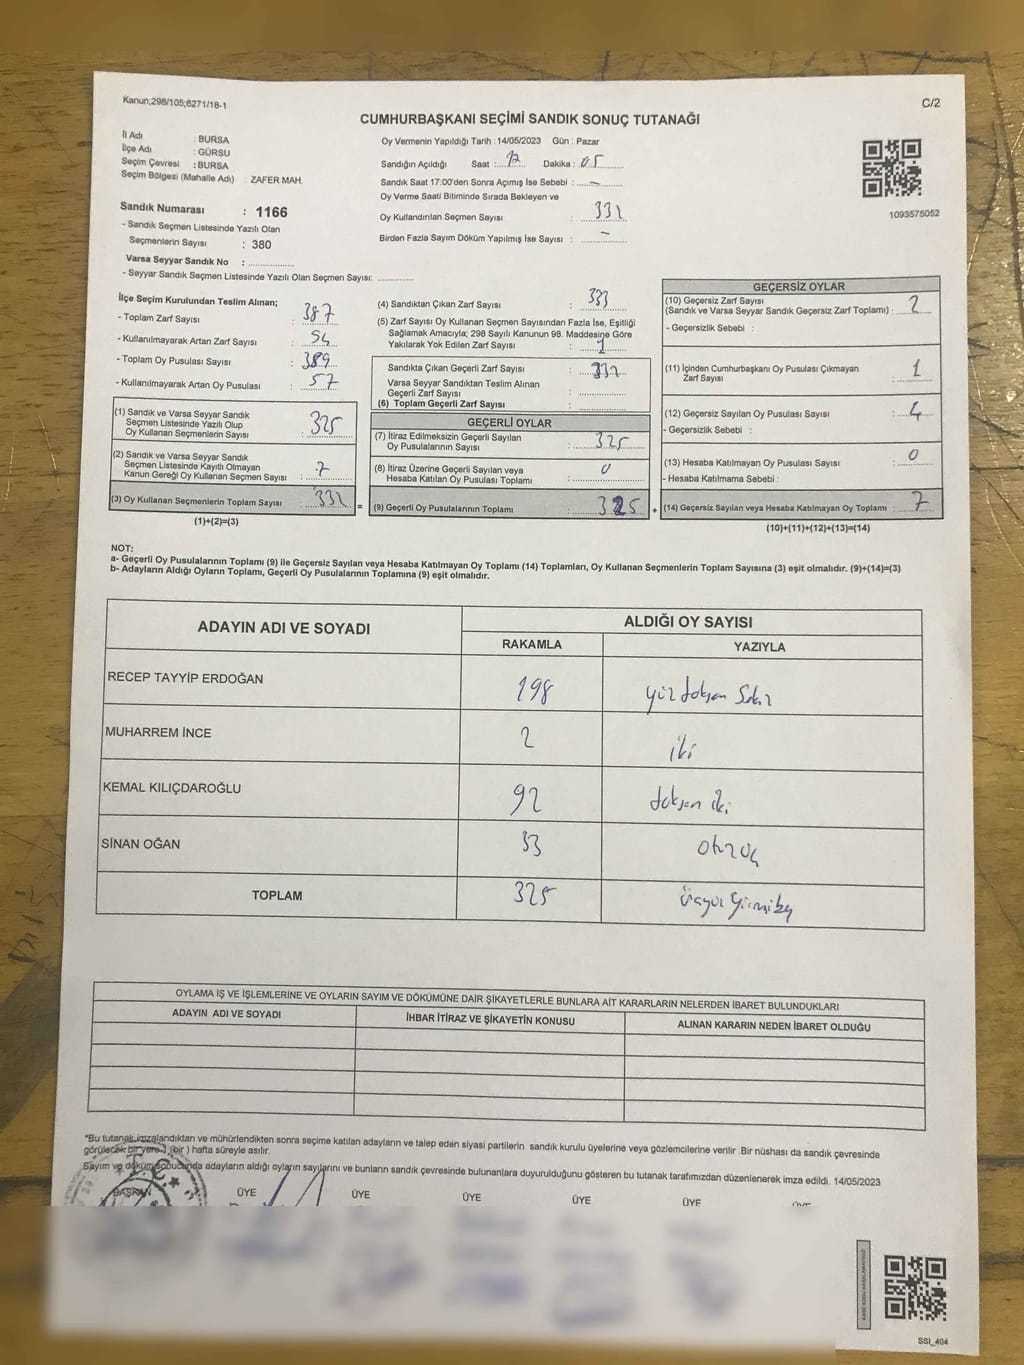 Kanun;298/105;6271/18-1
C/2
CUMHURBAŞKANI SEÇİMİ SANDIK SONUÇ TUTANAĞI
İl Adı : BURSA
İlçe Adı : GÜRSU
Seçim Çevresi : BURSA
Seçim Bölgesi (Mahalle Adı) : ZAFER MAH.
Sandık Numarası : 1166
- Sandık Seçmen Listesinde Yazılı Olan
Seçmenlerin Sayısı : 380
Varsa Seyyar Sandık No :
- Seyyar Sandık Seçmen Listesinde Yazılı Olan Seçmen Sayısı:
Oy Vermenin Yapıldığı Tarih :14/05/2023 Gün : Pazar
Sandığın Açıldığı Saat : 17 Dakika : 05
Sandık Saat 17:00'den Sonra Açımış İse Sebebi : –
Oy Verme Saati Bitiminde Sırada Bekleyen ve
Oy Kullandırılan Seçmen Sayısı : 332
Birden Fazla Sayım Döküm Yapılmış İse Sayısı : –
1093575052
İlçe Seçim Kurulundan Teslim Alınan;
- Toplam Zarf Sayısı : 387
- Kullanılmayarak Artan Zarf Sayısı : 54
- Toplam Oy Pusulası Sayısı : 389
- Kullanılmayarak Artan Oy Pusulası : 57
(1) Sandık ve Varsa Seyyar Sandık
Seçmen Listesinde Yazılı Olup
Oy Kullanan Seçmenlerin Sayısı : 325
(2) Sandık ve Varsa Seyyar Sandık
Seçmen Listesinde Kayıtlı Olmayan
Kanun Gereği Oy Kullanan Seçmen Sayısı : 7
(3) Oy Kullanan Seçmenlerin Toplam Sayısı : 332 =
(1)+(2)=(3)
(4) Sandıktan Çıkan Zarf Sayısı : 333
(5) Zarf Sayısı Oy Kullanan Seçmen Sayısından Fazla İse, Eşitliği
Sağlamak Amacıyla; 298 Sayılı Kanunun 98. Maddesine Göre
Yakılarak Yok Edilen Zarf Sayısı : 1
Sandıkta Çıkan Geçerli Zarf Sayısı : 332
Varsa Seyyar Sandıktan Teslim Alınan
Geçerli Zarf Sayısı :
(6) Toplam Geçerli Zarf Sayısı :
GEÇERLİ OYLAR
(7) İtiraz Edilmeksizin Geçerli Sayılan
Oy Pusulalarının Sayısı : 325
(8) İtiraz Üzerine Geçerli Sayılan veya
Hesaba Katılan Oy Pusulası Toplamı : 0
(9) Geçerli Oy Pusulalarının Toplamı : 325 +
GEÇERSİZ OYLAR
(10) Geçersiz Zarf Sayısı
(Sandık ve Varsa Seyyar Sandık Geçersiz Zarf Toplamı) : 2
- Geçersizlik Sebebi :
(11) İçinden Cumhurbaşkanı Oy Pusulası Çıkmayan
Zarf Sayısı : 1
(12) Geçersiz Sayılan Oy Pusulası Sayısı : 4
- Geçersizlik Sebebi :
(13) Hesaba Katılmayan Oy Pusulası Sayısı : 0
- Hesaba Katılmama Sebebi :
(14) Geçersiz Sayılan veya Hesaba Katılmayan Oy Toplamı : 7
(10)+(11)+(12)+(13)=(14)
NOT:
a- Geçerli Oy Pusulalarının Toplamı (9) ile Geçersiz Sayılan veya Hesaba Katılmayan Oy Toplamı (14) Toplamları, Oy Kullanan Seçmenlerin Toplam Sayısına (3) eşit olmalıdır. (9)+(14)=(3)
b- Adayların Aldığı Oyların Toplamı, Geçerli Oy Pusulalarının Toplamına (9) eşit olmalıdır.
ADAYIN ADI VE SOYADI
ALDIĞI OY SAYISI
RAKAMLA YAZIYLA
RECEP TAYYİP ERDOĞAN 198 yüz doksan Sekiz
MUHARREM İNCE 2 iki
KEMAL KILIÇDAROĞLU 92 doksan iki
SİNAN OĞAN 33 otuz üç
TOPLAM 325 üçyüz yirmibeş
OYLAMA İŞ VE İŞLEMLERİNE VE OYLARIN SAYIM VE DÖKÜMÜNE DAİR ŞİKAYETLERLE BUNLARA AİT KARARLARIN NELERDEN İBARET BULUNDUKLARI
ADAYIN ADI VE SOYADI İHBAR İTİRAZ VE ŞİKAYETİN KONUSU ALINAN KARARIN NEDEN İBARET OLDUĞU
*Bu tutanak imzalandıktan ve mühürlendikten sonra seçime katılan adayların ve talep eden siyasi partilerin sandık kurulu üyelerine veya gözlemcilerine verilir .Bir nüshası da sandık çevresinde
görülecek bir yere 1 (bir ) hafta süreyle asılır.
Sayım ve döküm sonucunda adayların aldığı oyların sayılarını ve bunların sandık çevresinde bulunanlara duyurulduğunu gösteren bu tutanak tarafımızdan düzenlenerek imza edildi. 14/05/2023
BAŞKAN ÜYE ÜYE ÜYE ÜYE ÜYE ÜYE
T.C.
SSI_404